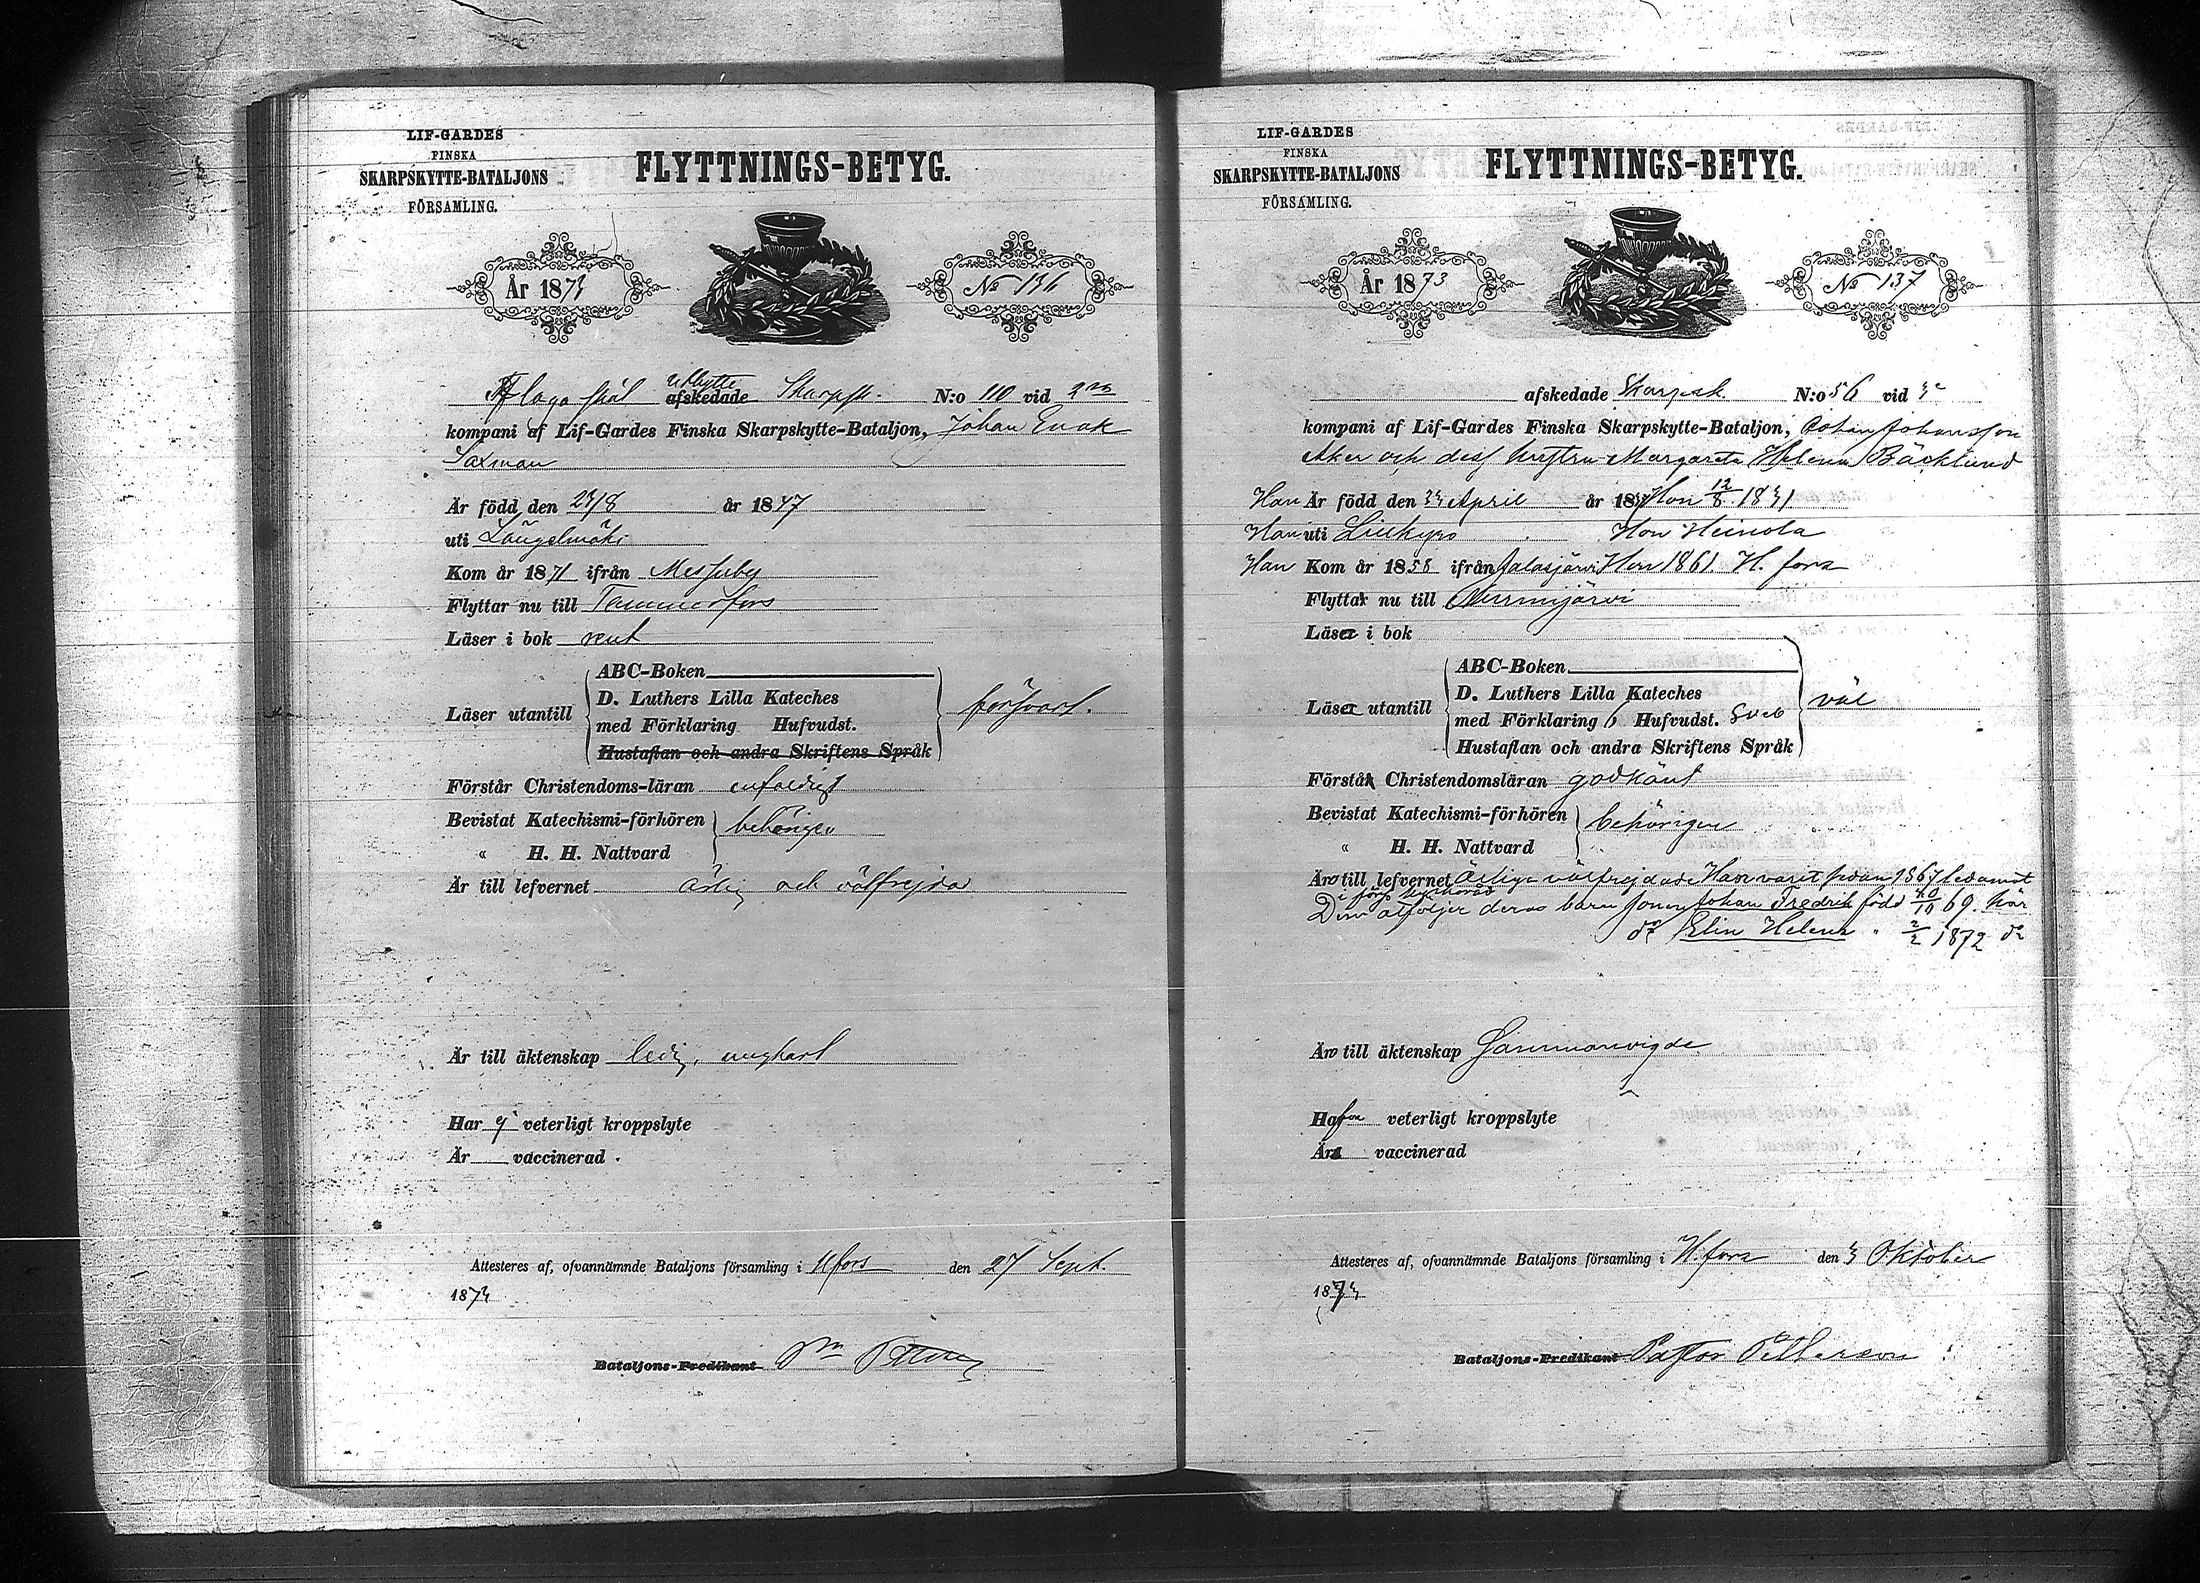 LIF-GARDES
FINSKA
SKARPSKYTTE-BATALJONS
FÖRSAMLING.
FLYTTNINGS-BETYG.
År 1873
No 136
utbytte
afskedade Skarpsk. N:o 110 vid 2ra
kompani af Lif-Gardes Finska Skarpskytte-Bataljon, Johan Enok
Saxman
Är född den 24/8 år 1847
uti Längelmäki
Kom år 1871 ifrån Messuby
Flyttar nu till Tammerfors
Läser i bok rent
ABC-Boken
D. Luthers Lilla Kateches
Läser utantill försvarl.
med Förklaring Hufvudst.
Hustaflan och andra Skriftens Språk
Förstår Christendoms-läran enfaldigt
Bevistat Katechismi-förhören behörigen
« H. H. Nattvard
Är till lefvernet ärlig och välfrejdad
Är till äktenskap ledig, ungkarl
Har ej veterligt kroppslyte
Är vaccinerad.
Attesteres af, ofvannämnde Bataljons församling i Hfors den 27 Sept.
1873
Bataljons-Predikant
LIF-GARDES
FINSKA
SKARPSKYTTE-BATALJONS
FÖRSAMLING.
FLYTTNINGS-BETYG.
År 1873
No 137
afskedade Skarpsk. N:o 56 vid 3e
kompani af Lif-Gardes Finska Skarpskytte-Bataljon, Johan Johansson
Aker och dess hustru Margareta Helena Bäcklund
Han Är född den 23 April år 18 Hon 12/8 1831
Han uti Lillkyro Hon Heinola
Han Kom år 1858 ifrån Jalasjärvi Hon 1861 H. fors
Flyttar nu till Nurmijärvi
Läser i bok
ABC-Boken
D. Luthers Lilla Kateches
Läser utantill väl
med Förklaring 6 Hufvudst. Sveb
Hustaflan och andra Skriftens Språk
Förstå Christendomsläran godkänt
Bevistat Katechismi-förhören behörigen
« H. H. Nattvard
Äro till lefvernet ärliga välfrejdade Han varit sedan 1867 ledamot
i förs. kyrkoråd
Dem åtföljer deras barn sonen Johan Fredrik född 20/10 69. här
dr Elin Helena " 2/2 1872 do
Äro till äktenskap Sammanvigde
Hafva veterligt kroppslyte
Är vaccinerad
Attesteres af, ofvannämnde Bataljons församling i H. fors den 3 Oktober
1873
Bataljons-Predikant Pastor Petterson